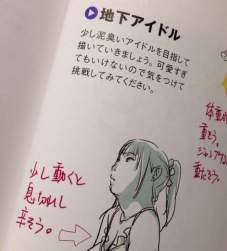 地下アイドル
少し泥臭いアイドルを目指して
描いていきましょう。可愛すぎ
てもいけないので気をつけて
挑戦してみてください。
少し動くと
息切れし
辛そう。
体重
重そう。
ジャンプ
重たそう。